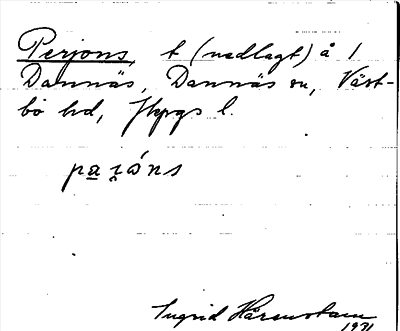 Perjons, t (nedlagt) å 1
Dannäs, Dannäs sn, Väst-
bo hd, Jkpgs l.
Ingrid Hårenstam
1931